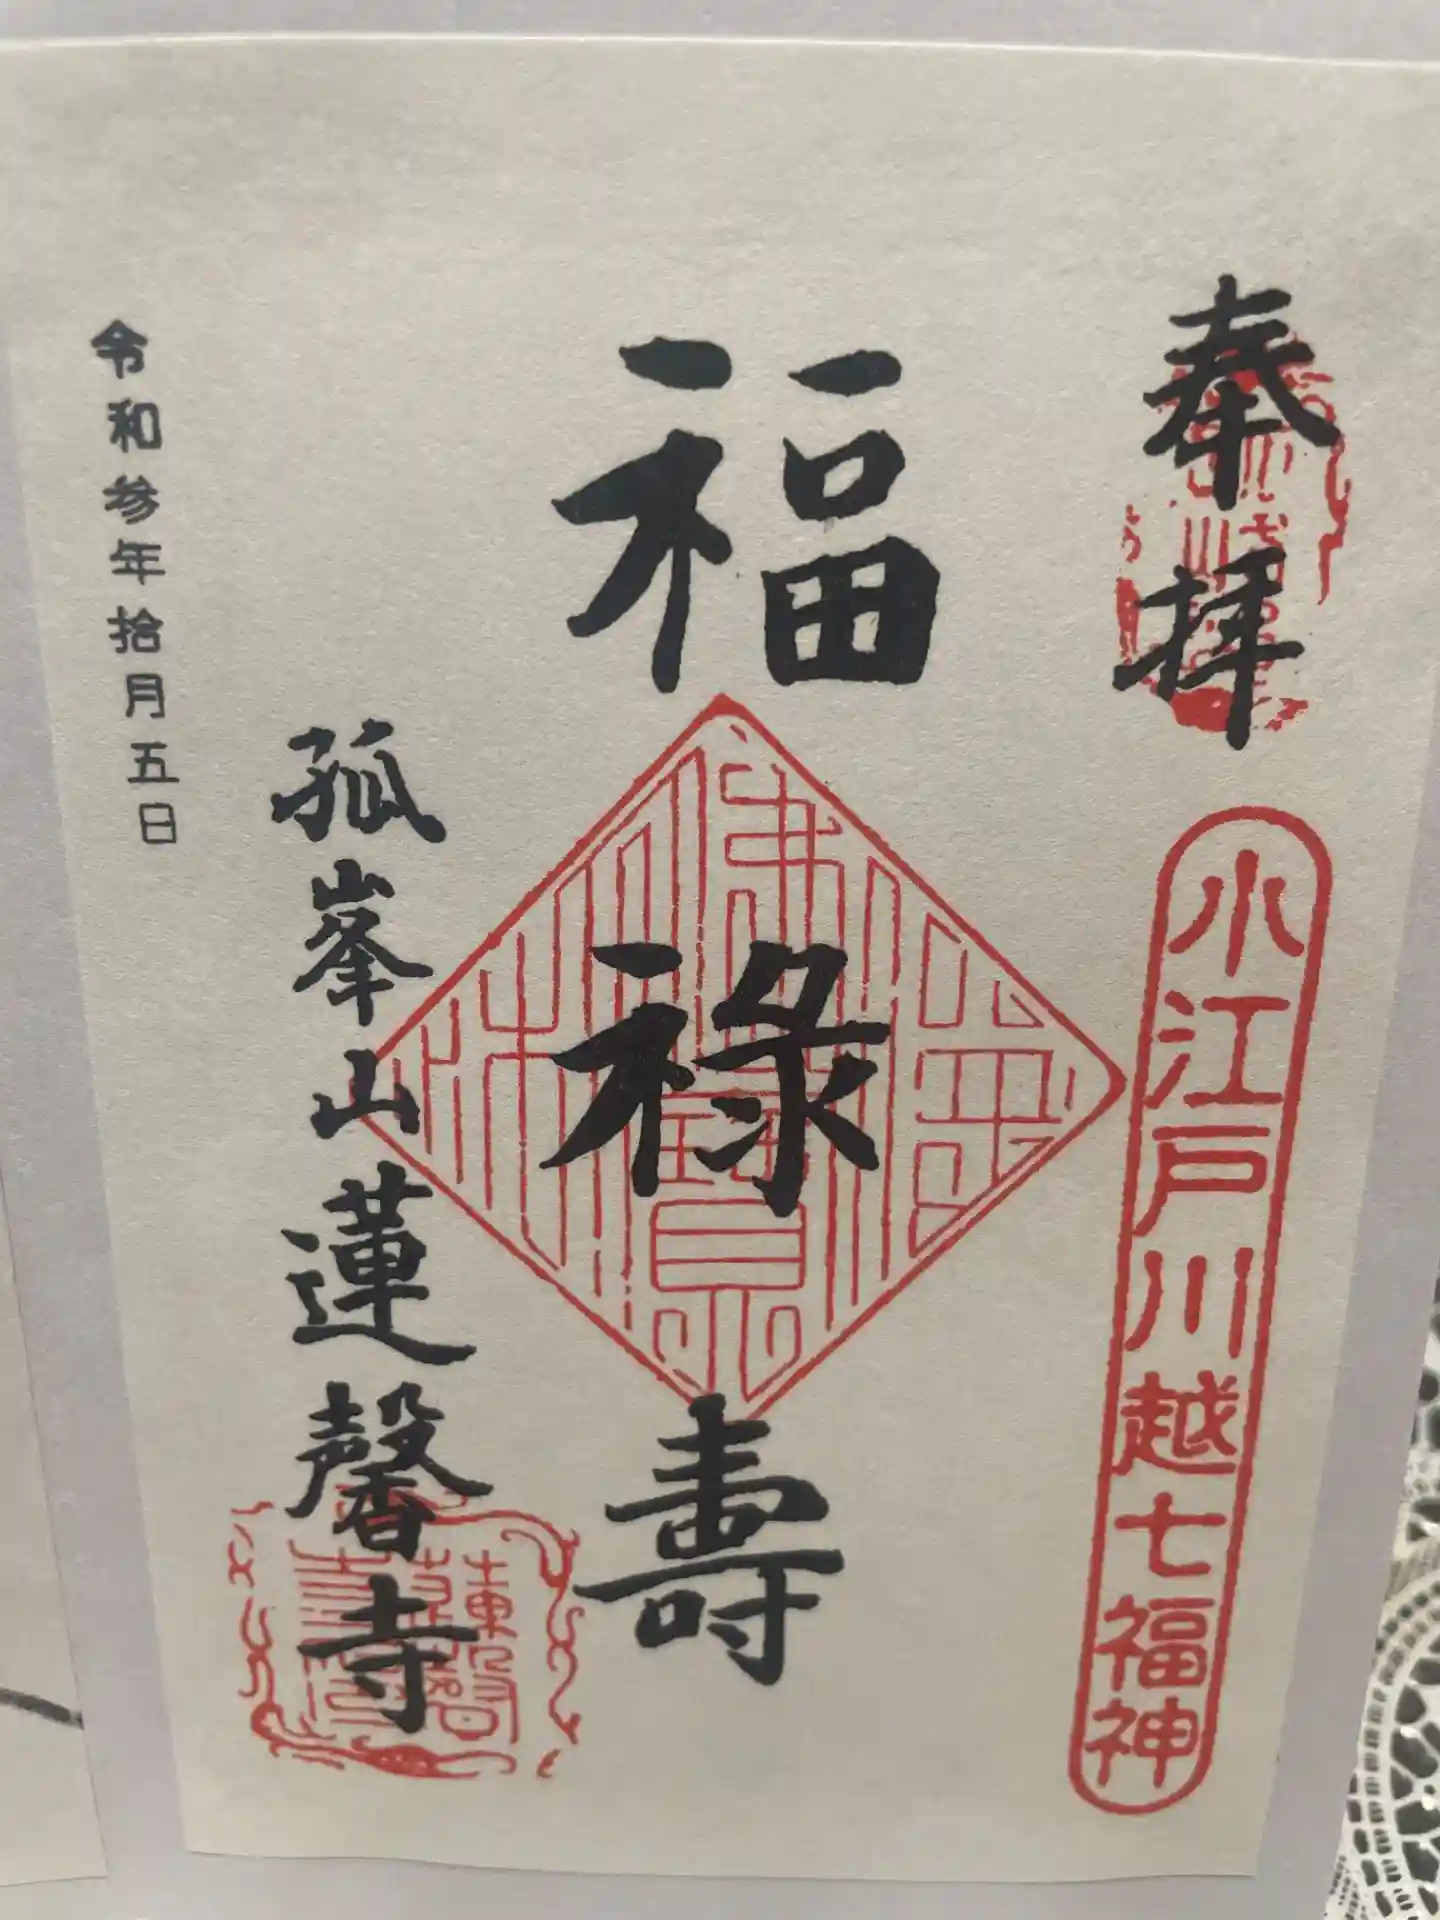 奉拝
小江戸川越七福神
福禄寿
孤峯山蓮馨寺
令和参年拾月五日